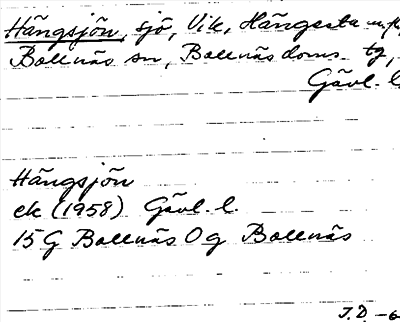 Hängsjön, sjö, Vik, Hängsta m.fl.
Bollnäs sn, Bollnäs doms. tg,
Gävl. l.
Hängsjön
ek (1958) Gävl. l.
15 G Bollnäs 0 g Bollnäs
J.D. -6